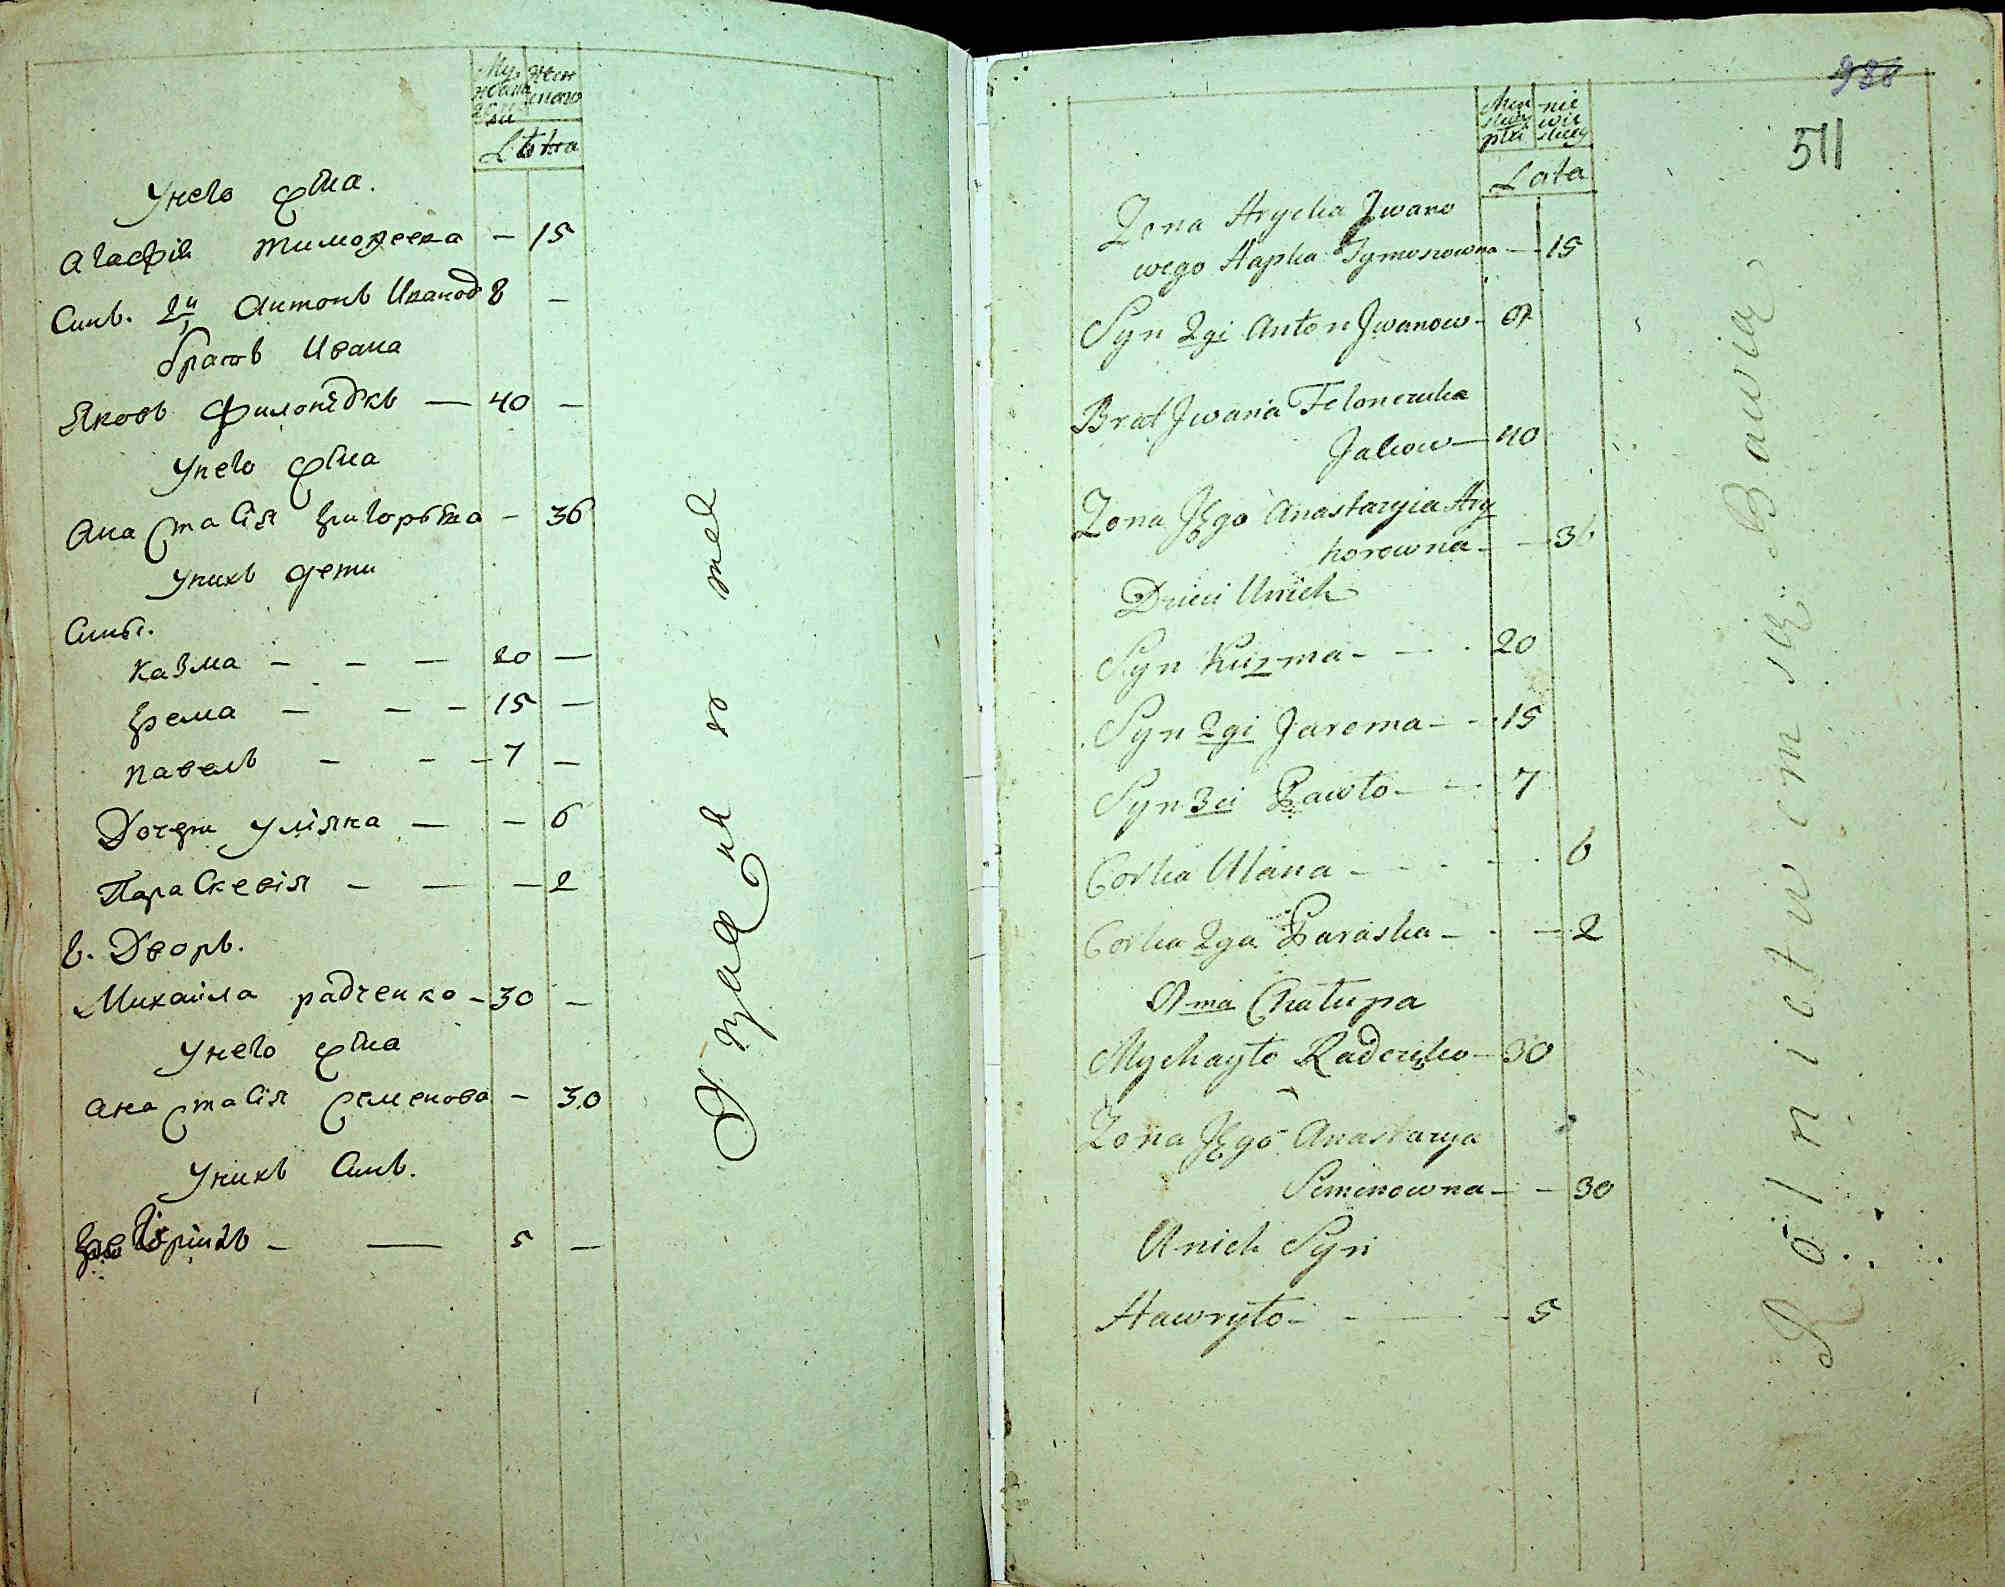 Лѣта
Унего жѣна.
Агафія Тимофеева — 15
Синъ. 2й Антонъ Иванов 8 —
братъ Ивана
Яковъ Филонѣдкъ — 40 —
Унего жѣна
Анастасія Григорѣва — 36
Унихъ дети
Сины.
Казма — — — 20 —
Ерема — — — 15 —
Павелъ — — — 7 —
Дочери Улiяна — — 6
Параскевія — — — 2
8. Дворъ.
Михайла радченко — 30 —
Унего жѣна
Анастасія Семенова — 30
Унихъ Синъ.
5 —
511
Lata
Żona Hrycka Jwano
wego Hapka Tymoszowna — 15
Syn 2gi Anton Jwanow —
Brat Jwana Felonczuka
Jakow — 40
Żona Jego Anastazyia Hry
horowna — — 36
Dzieci Unich
Syn Kuzma — — . 20
Syn 2gi Jaroma — — 15
Syn 3ci Pawło — — 7
Corka Ulana — — — . 6
Corka 2ga Paraska — . — 2
8ma Chałupa
Mychayło Radczeko — 30
Żona Jego Anastazya
Seminowna — — 30
Unich Syn
Hawryło — — — 5
Rolnictwem się Bawią